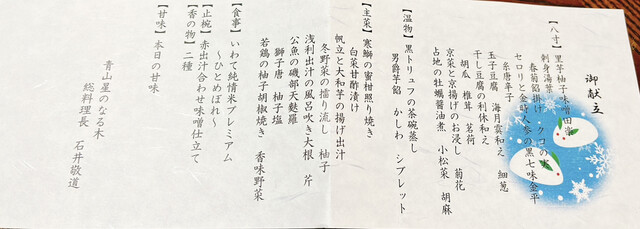 御献立
【八寸】
里芋柚子味噌田楽
刺身湯葉 クコの実
春菊餡掛け
セロリと金時人参の黒七味金平
糸唐辛子
玉子豆腐 海月雲和え 細葱
干し豆腐の利休和え
胡瓜 椎茸 茗荷
京菜と京揚げのお浸し 菊花
占地の牡蠣醤油煮 小松菜 胡麻
【温物】黒トリュフの茶碗蒸し
男爵芋餡 かしわ シブレット
【主菜】寒鰤の蜜柑照り焼き
白菜甘酢漬け
帆立と大和芋の揚げ出汁
冬野菜の擂り流し 柚子
浅利出汁の風呂吹き大根 芹
公魚の磯部天麩羅
獅子唐 柚子塩
若鶏の柚子胡椒焼き 香味野菜
【食事】いわて純情米プレミアム
～ひとめぼれ～
【止椀】赤出汁合わせ味噌仕立て
【香の物】二種
【甘味】本日の甘味
青山星のなる木
総料理長 石井敬道